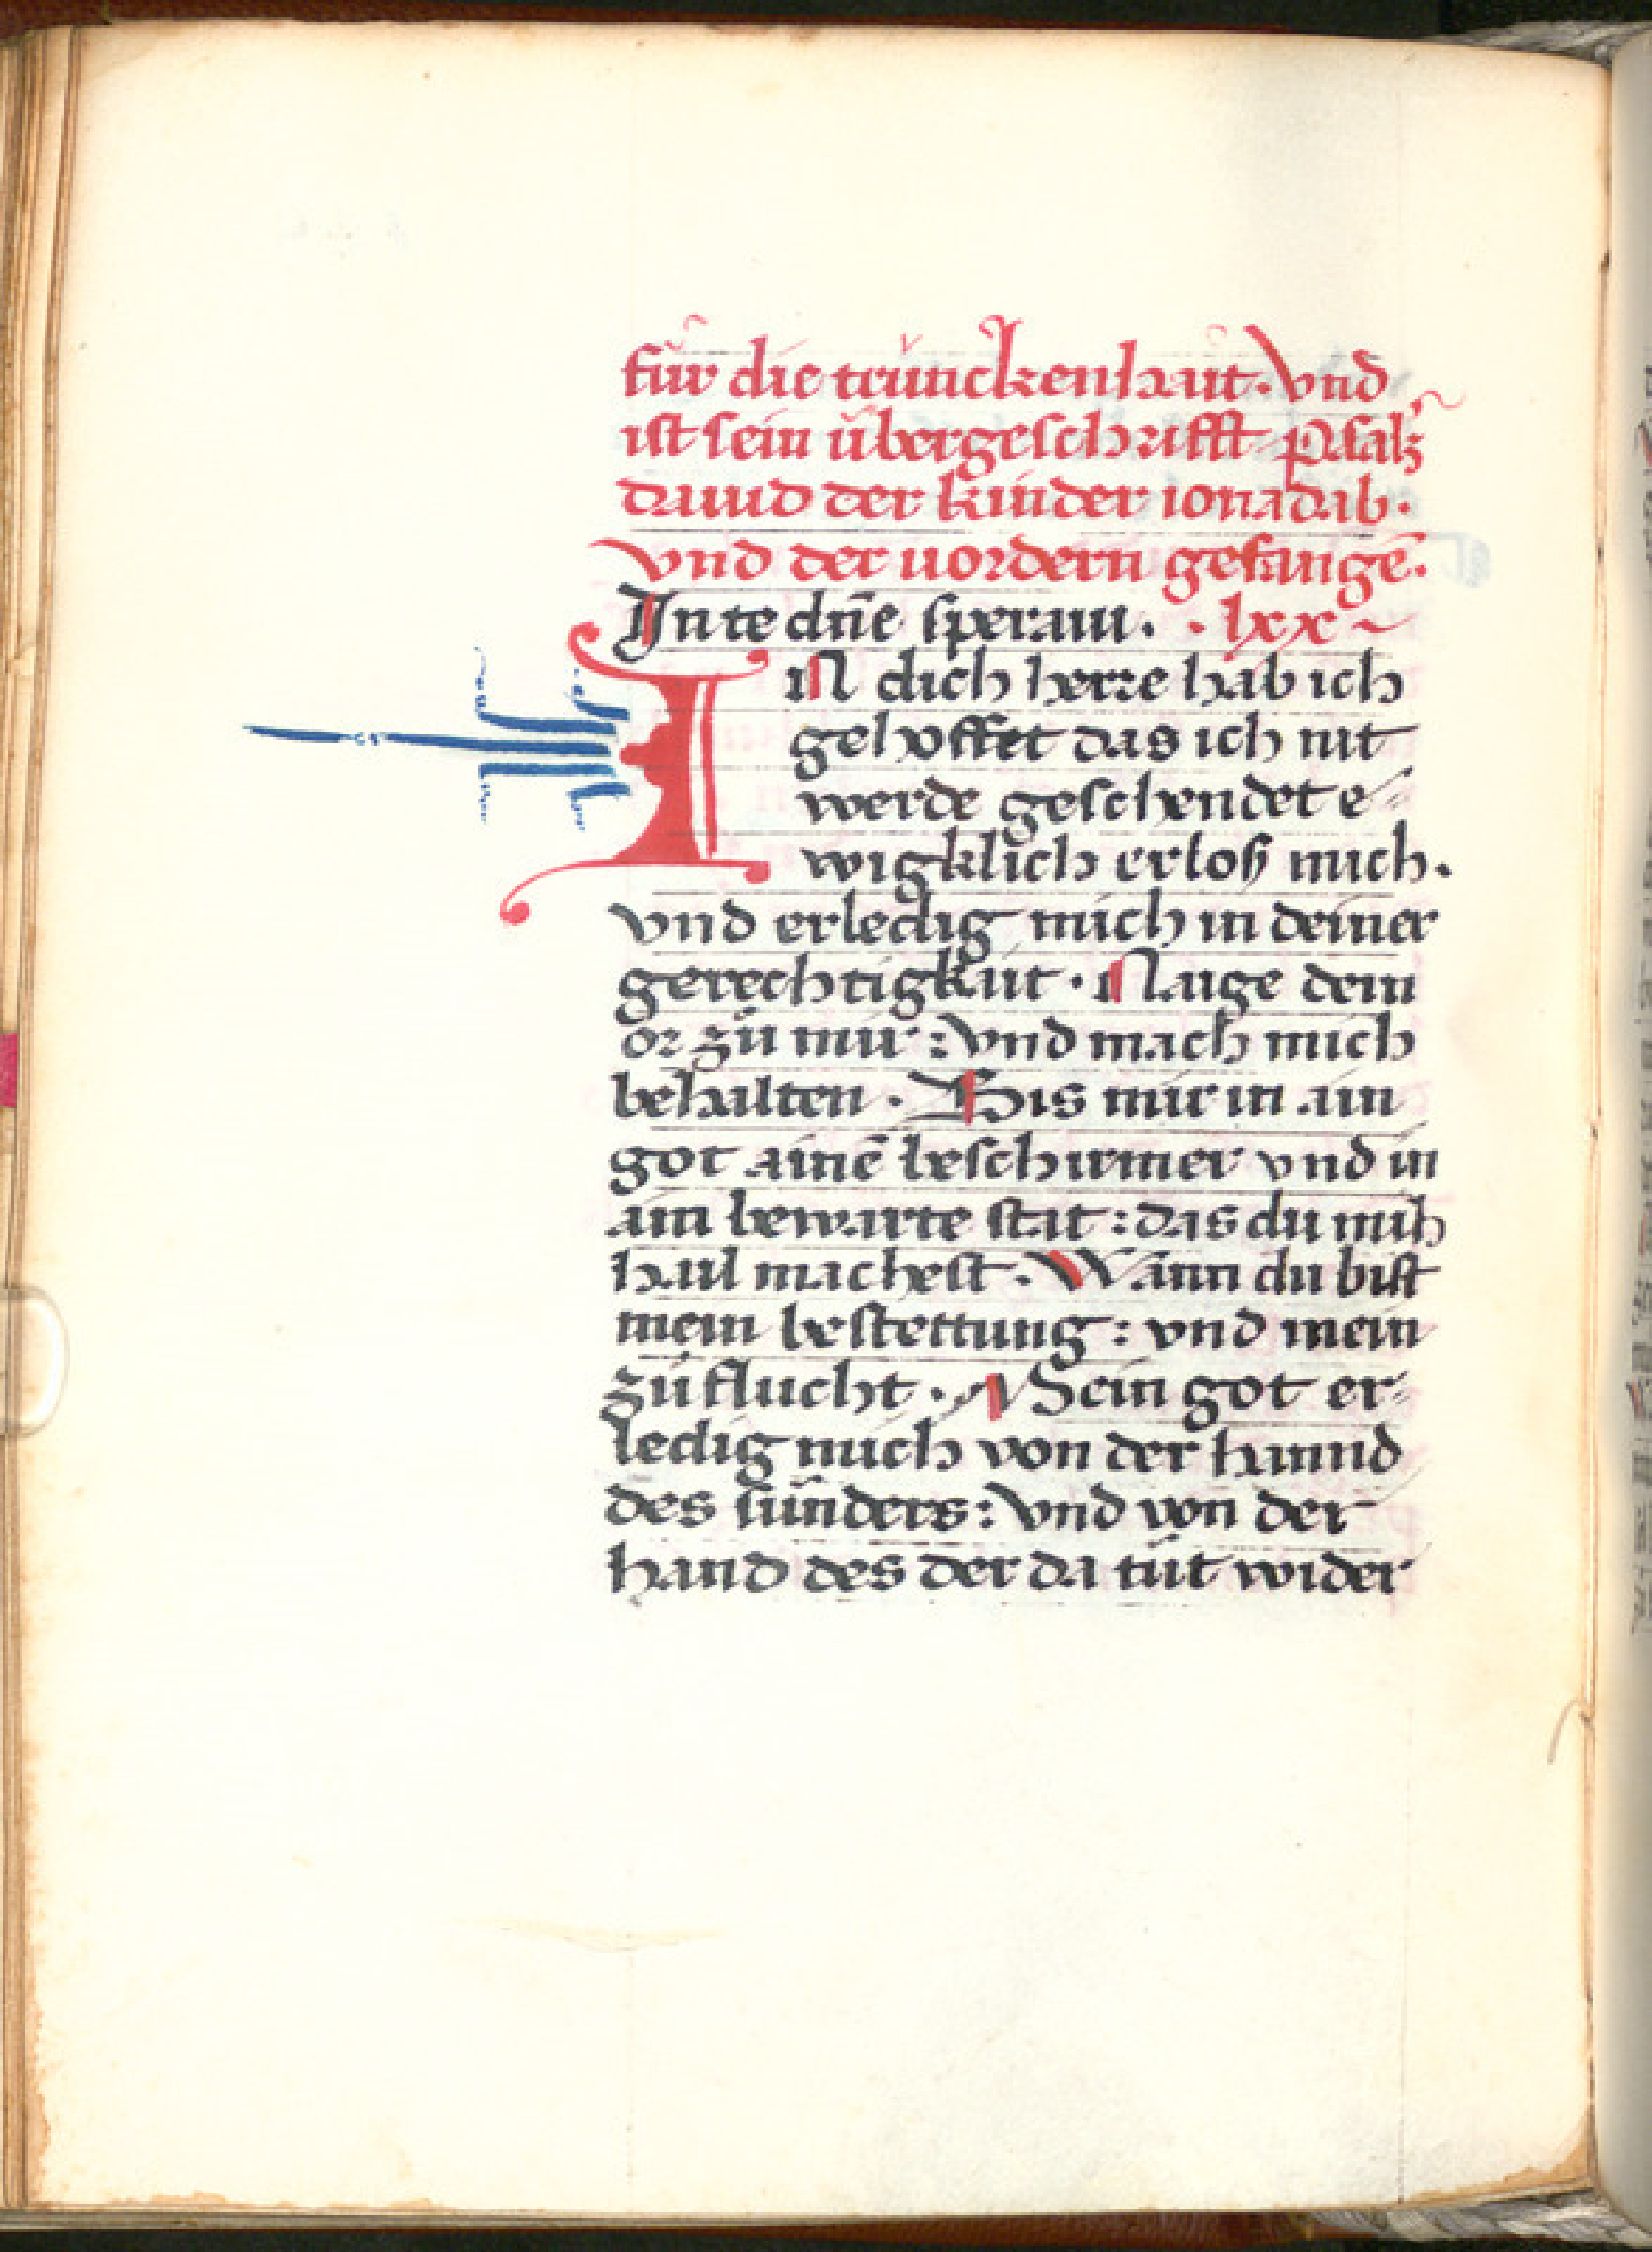 für die trunckenhait. Vnd
ist sein übergeschrifft Psalm
dauid der kinder ionadab.
vnd der uordern gefangē.
In te dn̄e speraui. . lxx
IN dich herre hab ich
gehoffet das ich nit
werde geschendet e-
wigklich erlosz mich.
vnd erledig mich in deiner
gerechtigkait. Naige dein
or zů mir: vnd mach mich
behalten. Bis mir in ain
got ainē beschirmer vnd in
ain bewarte stat: das du mich
hail machest. Wann du bist
mein bestettung: vnd mein
zůflucht. Mein got er-
ledig mich von der hannd
des sünders: vnd von der
hand des der da tůt wider